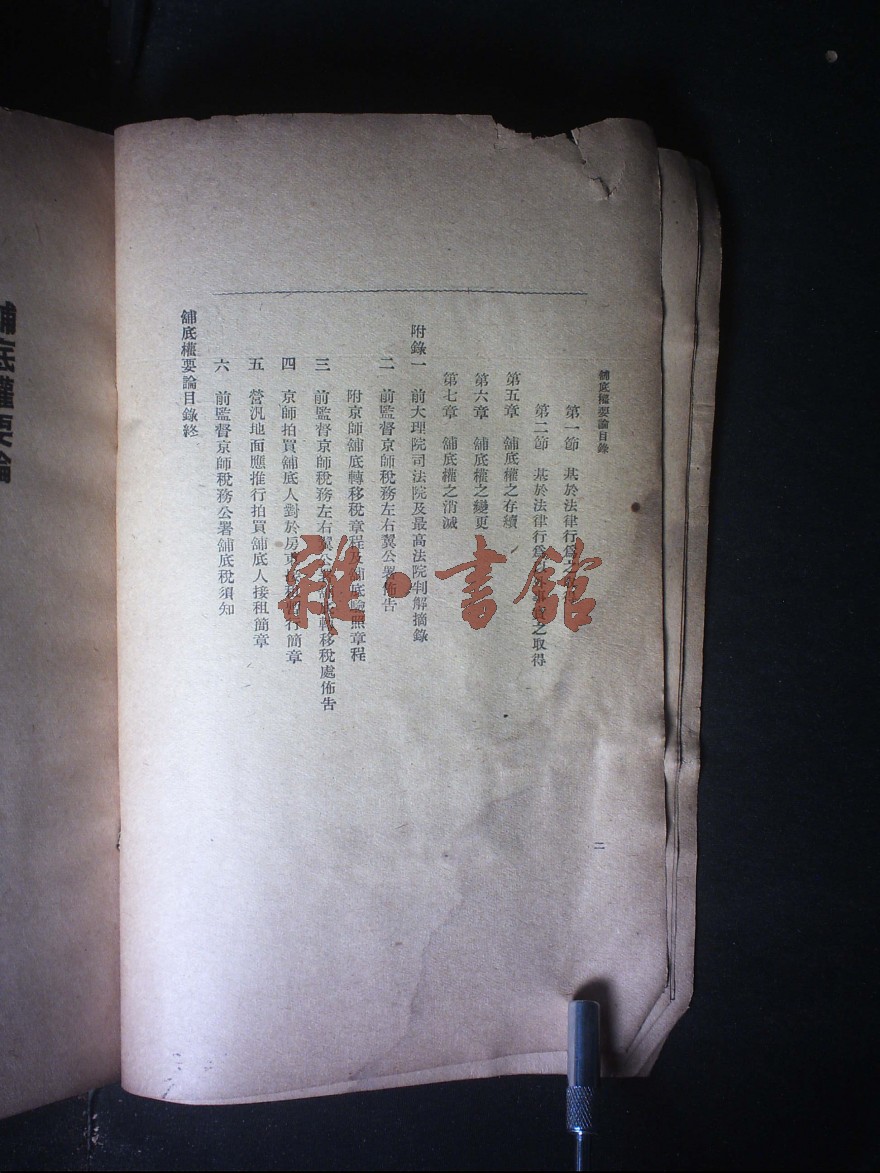 舖底權要論目錄
二
第一節　基於法律行爲之
第二節　基於法律行爲之取得
第五章　舖底權之存續
第六章　舖底權之變更
第七章　舖底權之消滅
附錄一　前大理院司法院及最高法院判解摘錄
二　前監督京師稅務左右翼公署佈告
附京師舖底轉移稅章程及舖底驗照章程
三　前監督京師稅務左右翼公署轉移稅處佈告
四　京師拍買舖底人對於房東接租暫行簡章
五　營汛地面應推行拍買舖底人接租簡章
六　前監督京師稅務公署舖底稅須知
舖底權要論目錄終
舖底權要論
雜·書館